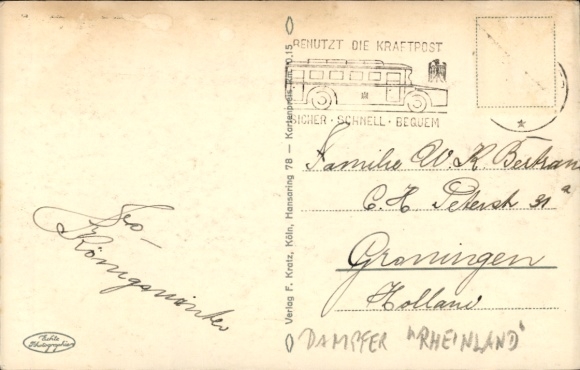 BENUTZT DIE KRAFTPOST
SICHER · SCHNELL · BEQUEM
Verlag F. Kratz, Köln, Hansaring 78 — Kartenpreis Rm. 0.15
Familie W. K. Bertram
C. H. Peterstr 31 a
Groningen
Holland
DAMPFER "RHEINLAND"
Königswinter
Echte Photographie